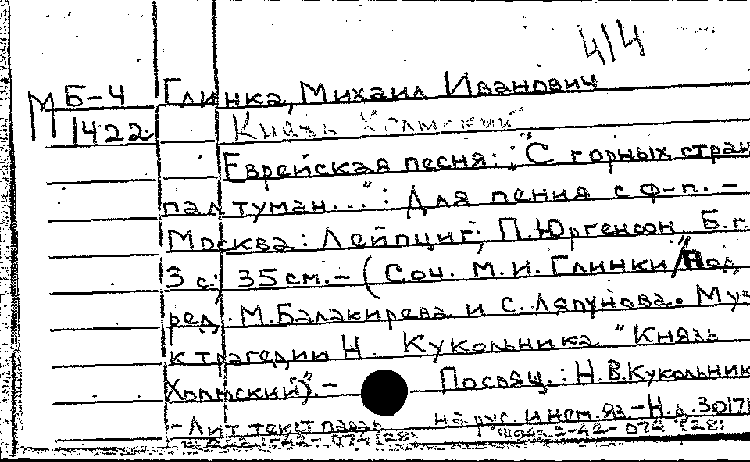 414
М Б-4 Глинка, Михаил Иванович
1422 Князь Холмский
Еврейская песня: "С горных стран
пал туман...": Для пения с ф-п. -
Москва: Лейпциг; П. Юргенсон, Б.г.
3 с; 35 см. - (Соч. М. И. Глинки / Под
ред. М. Балакирева и С. Ляпунова. Муз
к трагедии Н. Кукольника "Князь
Холмский"). - Посвящ.: Н. В. Кукольник
- Лит текст парал. на рус. и нем. яз - Н. д. 3017